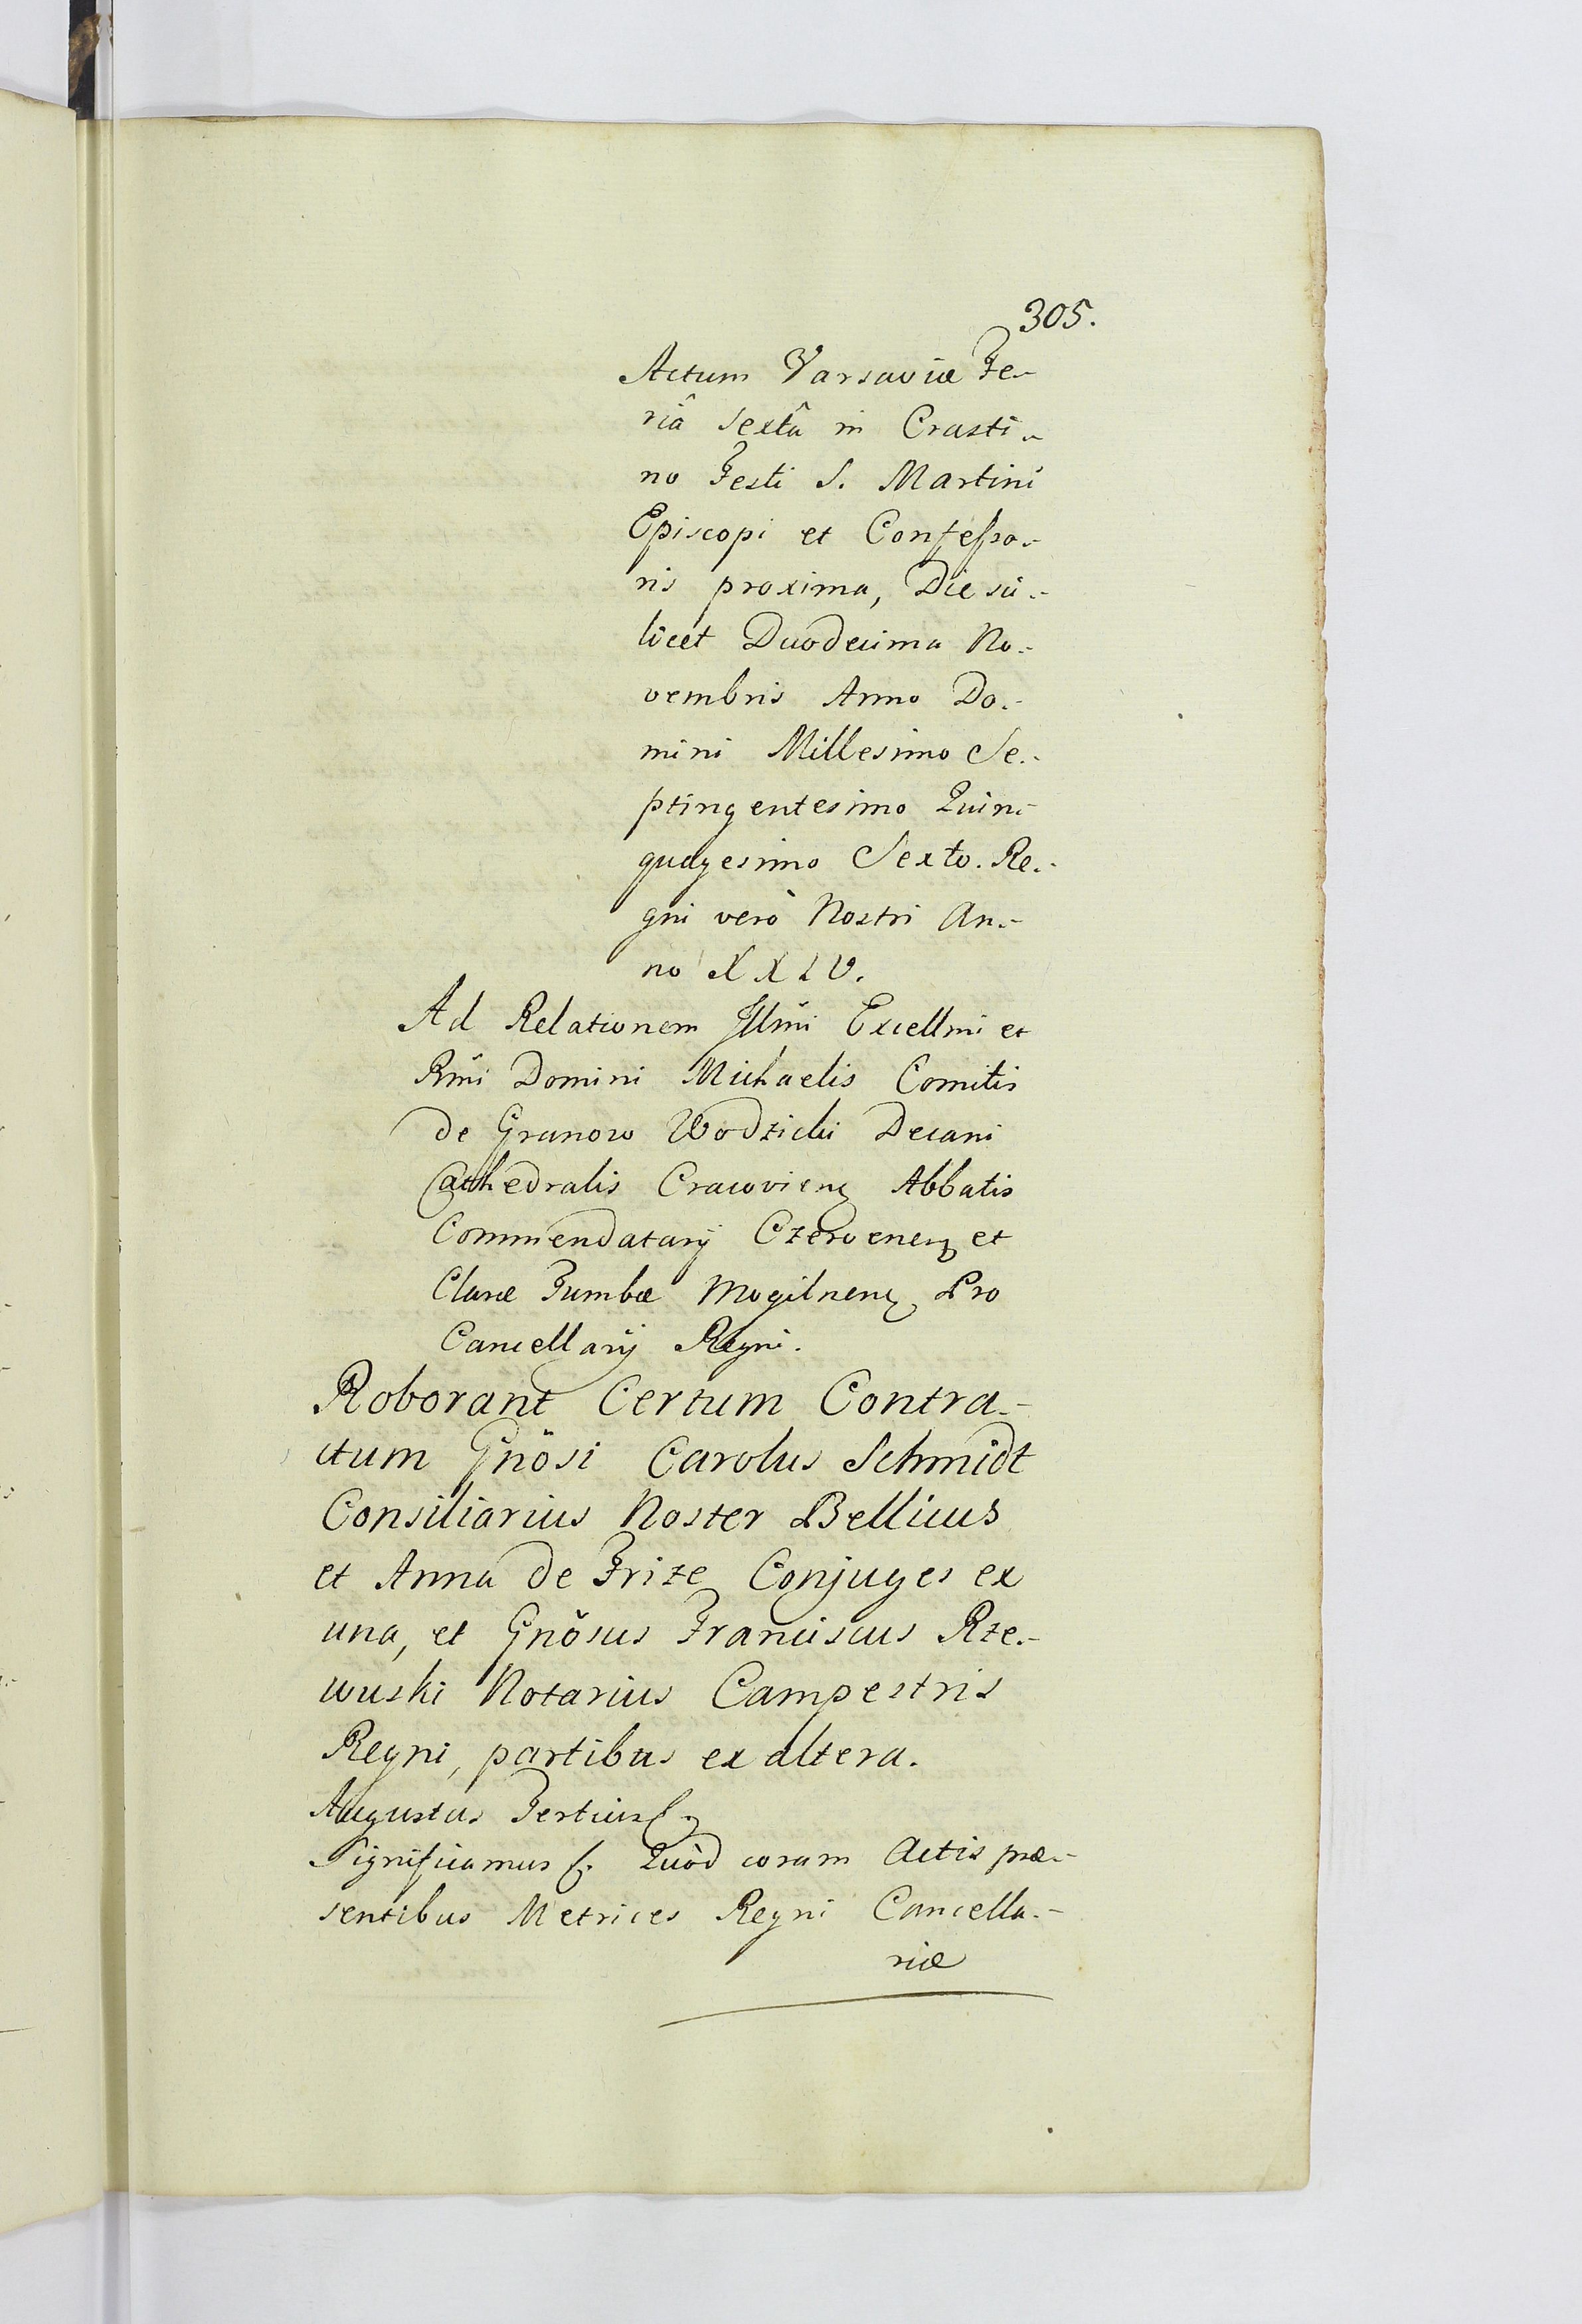 305.
Actum Varsaviæ Fe-
riâ sextâ in Crasti-
no Festi S. Martini
Episcopi et Confesso-
ris proxima, Die sci-
licet Duodecima No-
vembris Anno Do-
mini Millesimo Se-
ptingentesimo Quin-
quagesimo Sexto. Re-
gni verò Nostri An-
no XXIV.
Ad Relationem Illmi Excellmi et
Rmi Domini Michaelis Comitis
de Granow Wodzicki Decani
Cathedralis Cracovien Abbatis
Commendatarij Czerwenen et
Claræ Tumbæ Mogilnen Pro
Cancellarij Regni.
Roborant Certum Contra-
ctum Gnõsi Carolus Schmidt
Consiliarius Noster Bellicus
et Anna de Frize Conjuges ex
una, et Gnõsus Franciscus Rze-
wuski Notarius Campestris
Regni, partibus ex altera.
Augustus Tertius
Significamus Quòd coram Actis præ-
sentibus Metrices Regni Cancella-
riæ